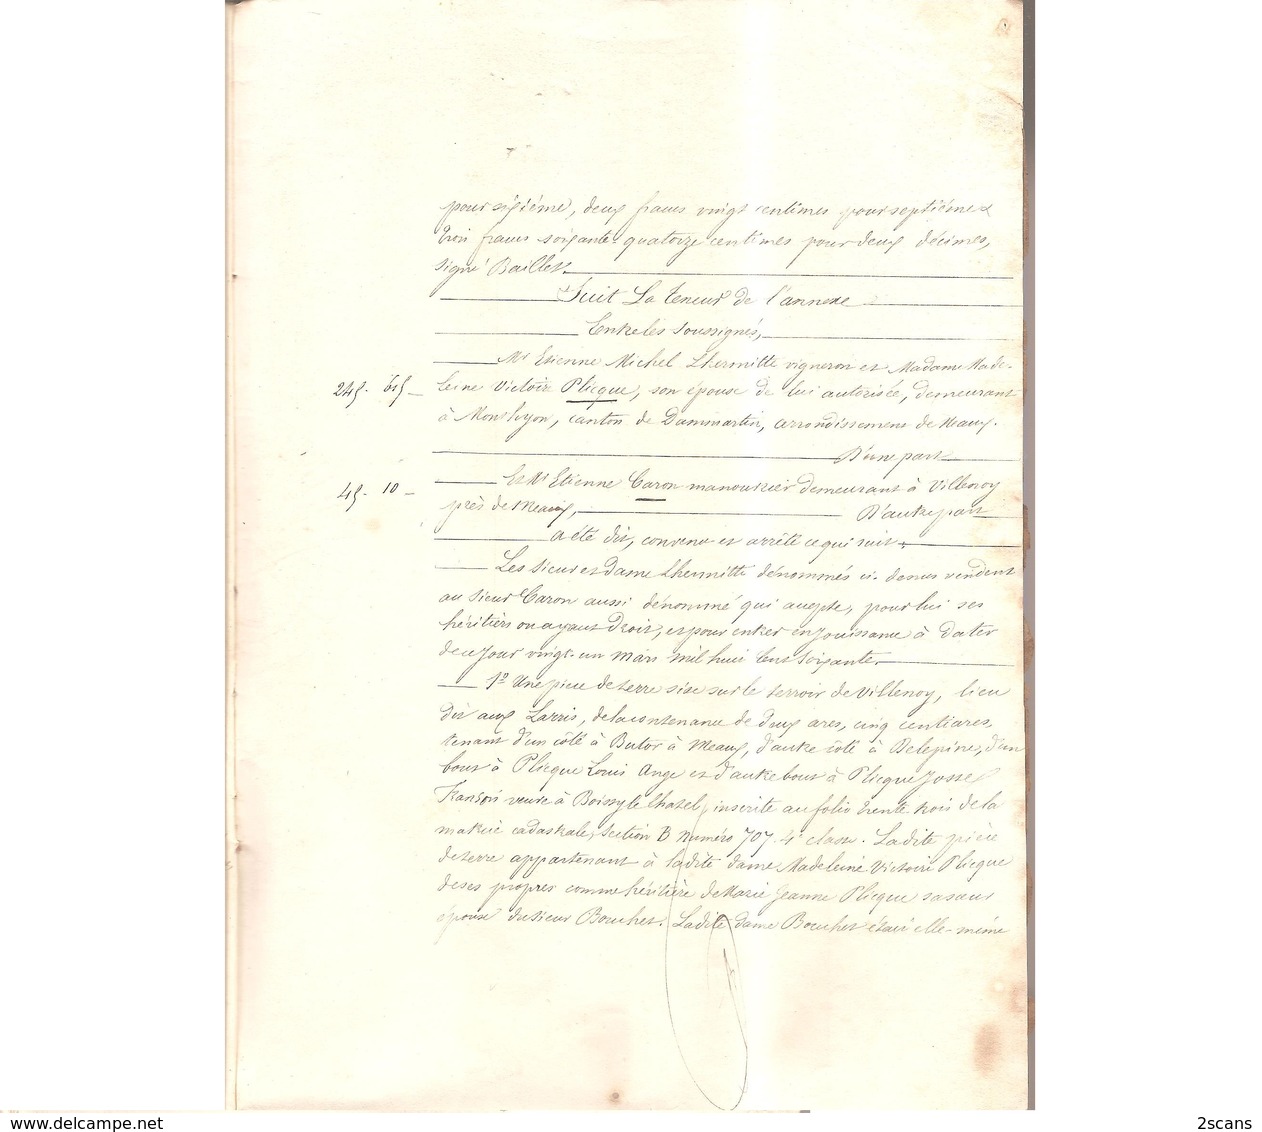 pour sixième, deux francs vingt centimes pour septième et
trois francs soixante quatorze centimes pour deux décimes,
signé Baillet.
Suit La teneur de l'annexe
Entre les soussignés,
Mr Etienne Michel Lhermitte vigneron et Madame Made-
245. 65 - leine Victoire Plicque, son épouse de lui autorisée, demeurant
à Monthyon, canton de Dammartin, arrondissement de Meaux.
D'une part
45. 10 - Et Mr Etienne Caron manouvrier demeurant à Villenoy
près de Meaux, D'autre part
a été dit, convenu et arrêté ce qui suit :
Les Sieur et dame Lhermitte dénommés ci-dessus vendent
au Sieur Caron aussi dénommé qui accepte, pour lui ses
héritiers ou ayant Droit, et pour entrer en jouissance à dater
de ce jour vingt-un mars mil huit cent soixante.
1º Une pièce de terre sise sur le terroir de Villenoy, lieu
dit aux Larris, de la contenance de deux ares, cinq centiares,
tenant d'un côté à Butor à Meaux, d'autre côté à Delepine, d'un
bout à Plicque Louis Ange et d'autre bout à Plicque Josse
veuve à Boissy le Chatel, inscrite au folio trente trois de la
matrice cadastrale, section B numéro 707. 4e classe. Ladite pièce
de terre appartenant à ladite dame Madeleine Victoire Plicque
de ses propres comme héritière de Marie Jeanne Plicque sa sœur
épouse du sieur Bouchet. Ladite dame Bouchet était elle-même
www.delcampe.net
2scans